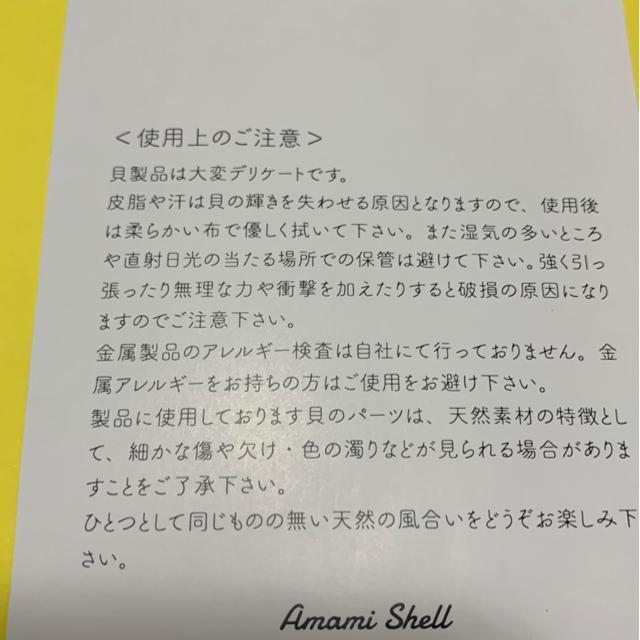 ＜使用上のご注意＞
貝製品は大変デリケートです。
皮脂や汗は貝の輝きを失わせる原因となりますので、使用後
は柔らかい布で優しく拭いて下さい。また湿気の多いところ
や直射日光の当たる場所での保管は避けて下さい。強く引っ
張ったり無理な力や衝撃を加えたりすると破損の原因になり
ますのでご注意下さい。
金属製品のアレルギー検査は自社にて行っておりません。金
属アレルギーをお持ちの方はご使用をお避け下さい。
製品に使用しております貝のパーツは、天然素材の特徴とし
て、細かな傷や欠け・色の濁りなどが見られる場合がありま
すことをご了承下さい。
ひとつとして同じものの無い天然の風合いをどうぞお楽しみ下
さい。
Amami Shell